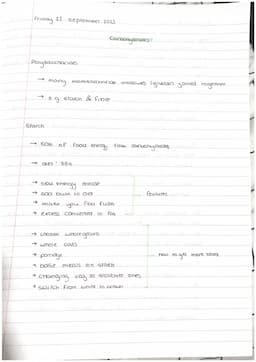 Friday 11 September 2021
Carbohydrates:
Polysaccharides
→ many monosaccharide molecules (glucose) joined together
→ e.g starch & fibre
Starch
→ 50% of food energy from carbohydrates
→ slow energy release
→ add bulk to diet
→ make you feel fuller
→ excess converted to fat
features
→ choose wholegrains
→ whole oats
→ porridge
→ base meals on starch
→ changing veg to starchier ones
→ switch from white to brown
how to get more starch